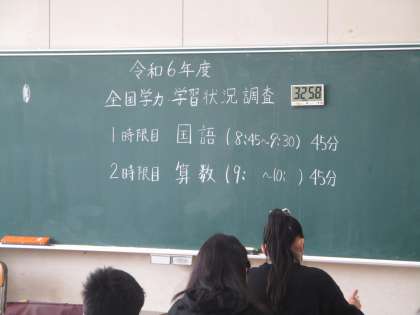 令和6年度
全国学力 学習状況 調査
32 58
1時限目 国語 (8:45~9:30) 45分
2時限目 算数 (9: ~10: ) 45分